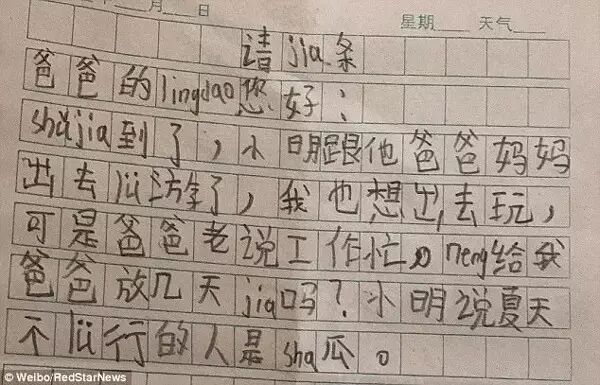 月 日 星期 天气
请jia条
爸爸的lingdao您好：
shǔjia到了，小明跟他爸爸妈妈
出去lü游了，我也想出去玩，
可是爸爸老说工作忙。neng给我
爸爸放几天jia吗？小明说夏天
不lü行的人是sha瓜。
© Weibo/RedStarNews